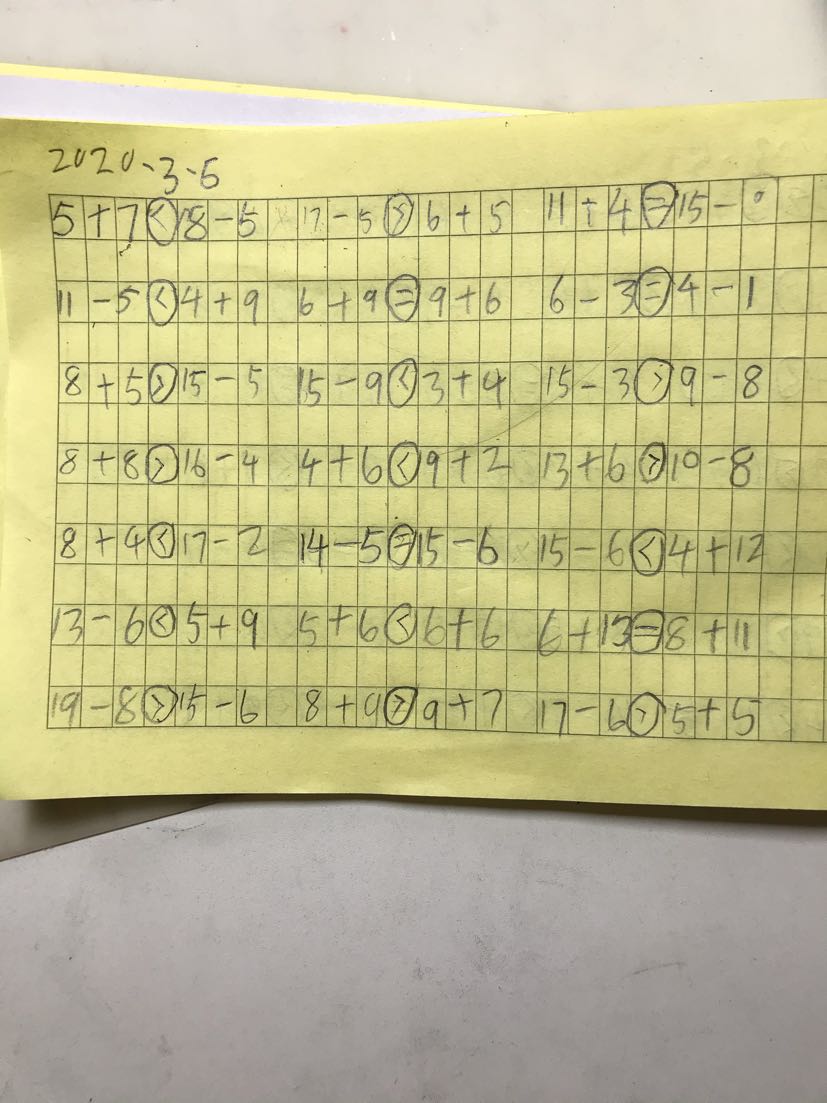 2020-3-6
5+7<18-5 17-5>6+5 11+4=15-0
11-5<4+9 6+9=9+6 6-3=4-1
8+5>15-5 15-9<3+4 15-3>9-8
8+8>16-4 4+6<9+2 13+6>10-8
8+4<17-2 14-5=15-6 15-6<4+12
13-6<5+9 5+6<6+6 6+13=8+11
19-8>15-6 8+9>9+7 17-6>5+5